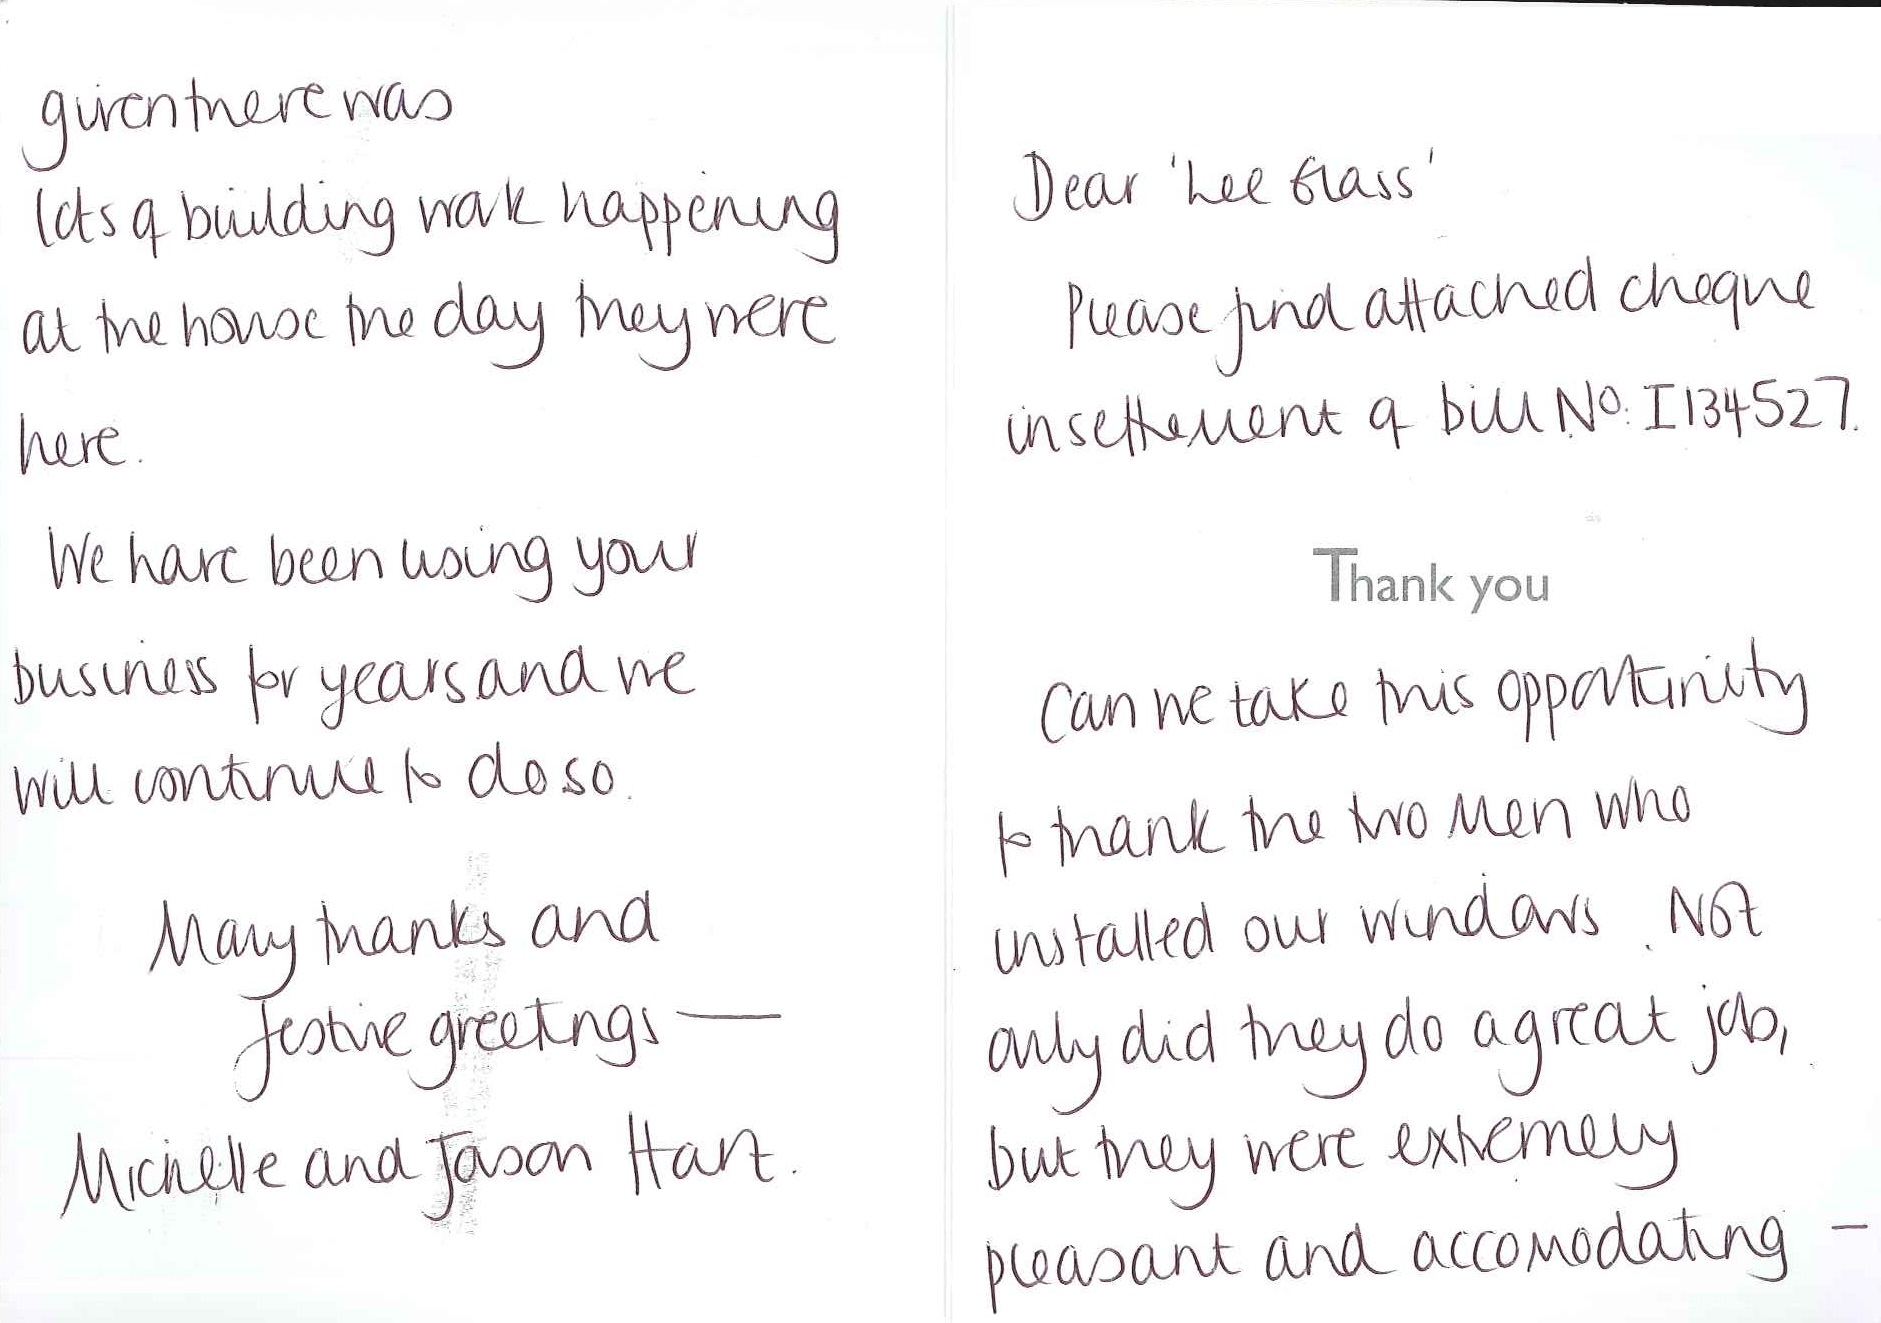 Dear 'Lee Glass'
Please find attached cheque
in settlement of bill No. I134527.
Thank you
Can we take this opportunity
to thank the two men who
installed our windows. Not
only did they do a great job,
but they were extremely
pleasant and accomodating —
given there was
lots of building work happening
at the house the day they were
here.
We have been using your
business for years and we
will continue to do so.
Many thanks and
festive greetings —
Michelle and Jason Hart.